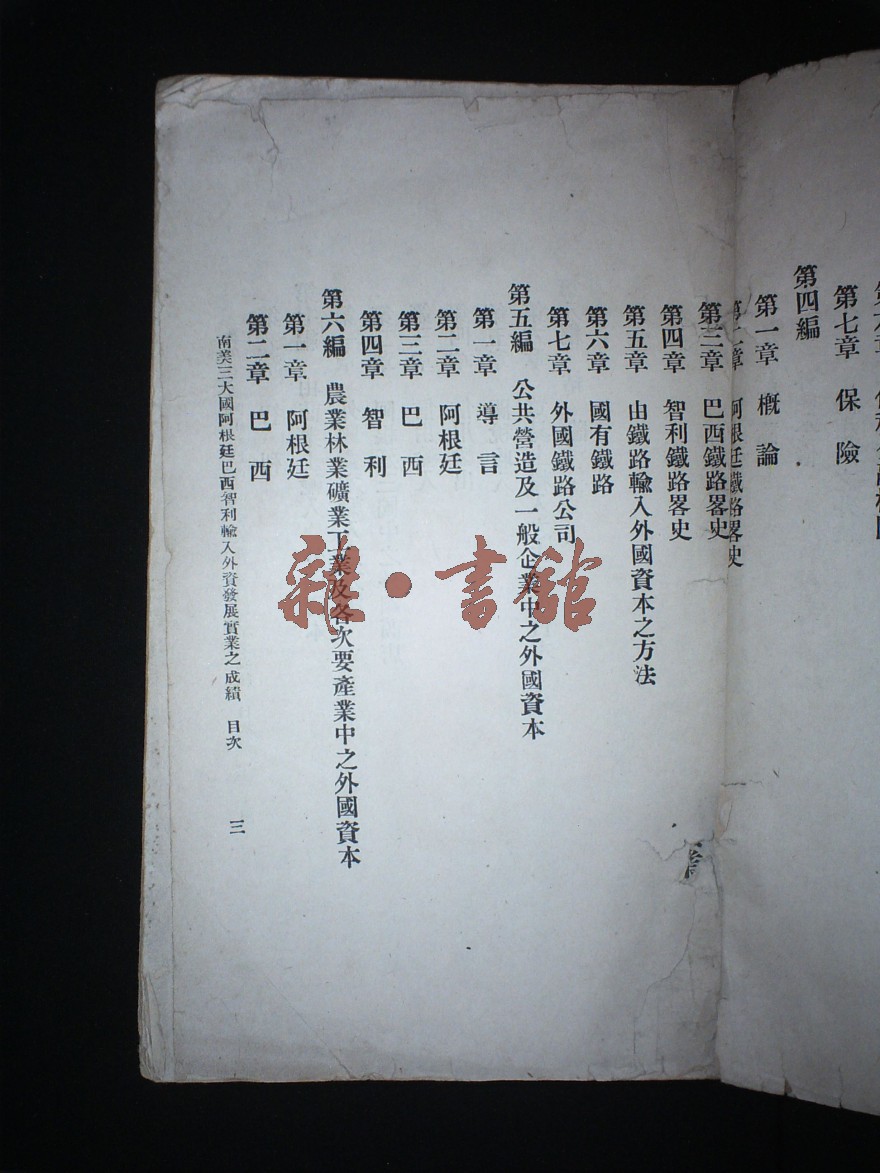 第七章 保險
第四編
第一章 概論
第二章 阿根廷鐵路畧史
第三章 巴西鐵路畧史
第四章 智利鐵路畧史
第五章 由鐵路輸入外國資本之方法
第六章 國有鐵路
第七章 外國鐵路公司
第五編 公共營造及一般企業中之外國資本
第一章 導言
第二章 阿根廷
第三章 巴西
第四章 智利
第六編 農業林業礦業工業及各次要產業中之外國資本
第一章 阿根廷
第二章 巴西
南美三大國阿根廷巴西智利輸入外資發展實業之成績 目次 三
雜·書館